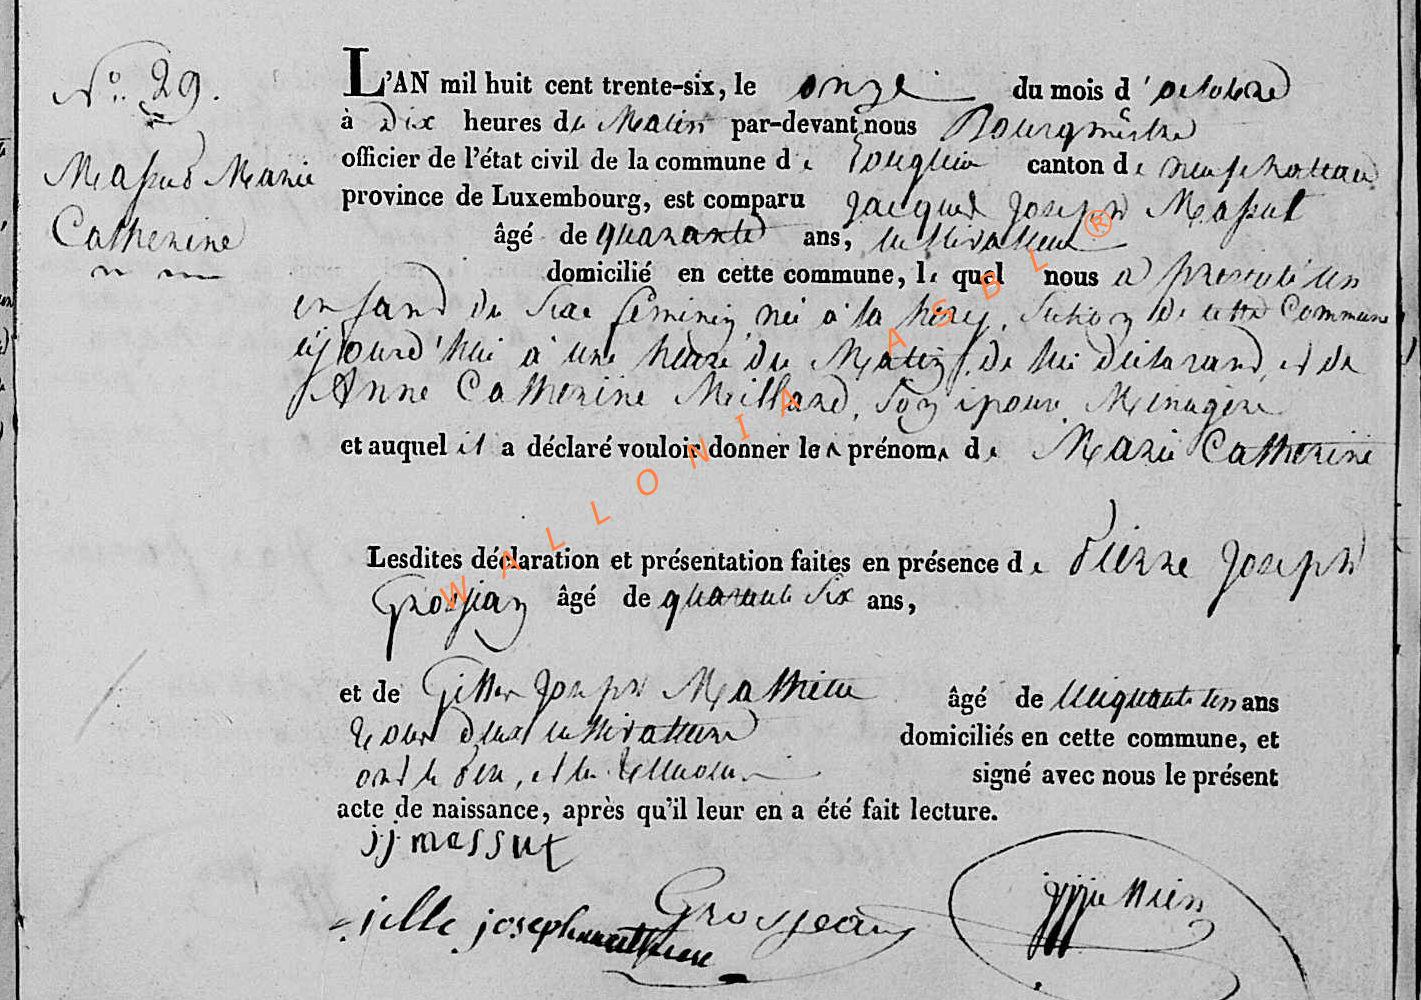 N° 29.
Massut Marie
Catherine
L'AN mil huit cent trente-six, le onze du mois d'octobre
à Dix heures du Matin par-devant nous Bourgmestre
officier de l'état civil de la commune de canton de neufchateau
province de Luxembourg, est comparu Jacques Joseph Massut
âgé de quarante ans, cultivateur
domicilié en cette commune, le quel nous a presenté un
enfand du Sexe feminin né à la Section de cette Commune
aujourd'hui à une heure du Matin, de lui declarand et de
Anne Catherine Son epouse Menagere
et auquel il a déclaré vouloir donner les prénoms de Marie Catherine
Lesdites déclaration et présentation faites en présence de Pierre Joseph
Grosjean âgé de quarante Six ans,
et de Joseph Mathieu âgé de cinquante un ans
tous deux cultivateurs domiciliés en cette commune, et
ont le pere, et les temoins signé avec nous le présent
acte de naissance, après qu'il leur en a été fait lecture.
jj massut
jille joseph mathieu
Grosjean
WALLONIA ASBL ®